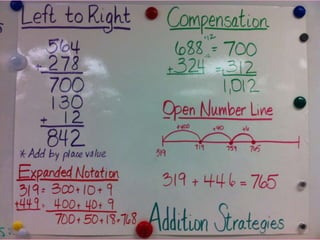 Left to Right
564
+ 278
700
130
+ 12
842
* Add by place value
Expanded Notation
319 = 300 + 10 + 9
+449 = 400 + 40 + 9
700 + 50 + 18 = 768
Compensation
+12
688 = 700
+ 324 = 312
1,012
Open Number Line
+400 +40 +6
319 719 759 765
319 + 446 = 765
Addition Strategies